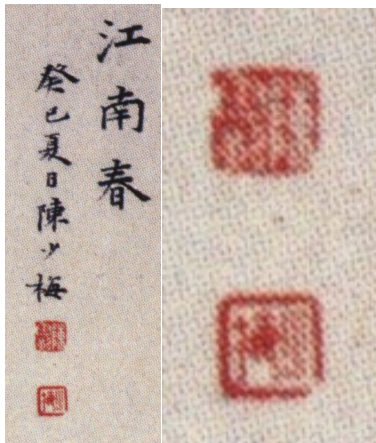 江南春
癸巳夏日陳少梅